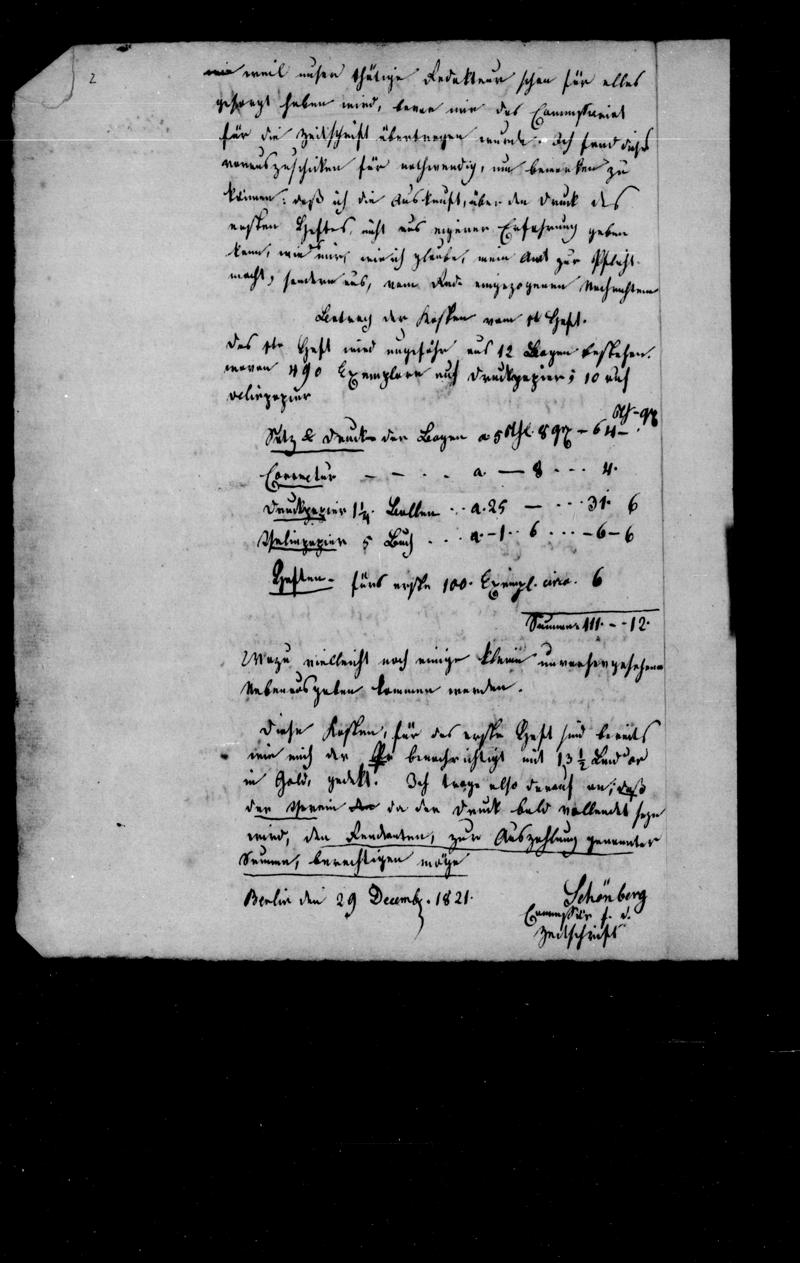 2
weil unser thätige Redakteur schon für alles
gesorgt haben wird, bevor mir das Commissariat
für die Zeitschrift übertragen wurde. Ich fand dieses
vorauszuschicken für nothwendig, um bemerken zu
können: daß ich die Auskunft, über den Druck des
ersten Heftes, nicht aus eigener Erfahrung geben
kann, wie mir, wie ich glaube, mein Amt zur Pflicht
macht, sondern aus, vom Reda eingezogenen Nachrichten
Betrag der Kosten vom 1t Heft.
Das 1te Heft wird ungefähr aus 12 Bogen bestehen.
wovon 490 Exemplare auf Druckpapier; 10 auf
Velinpapier
Satz & Druck der Bogen a 5 Rthl. 8 gr – 64 –
Correctur – – – a – 8 – – – 4.
Druckpapier 1¼ Ballen . . a. 25 – – – 31. 6
Velinpapier 5 Buch . . . a – 1 . . 6 . . . – 6 – 6
Heften – fürs erste 100. Exempl. circa. 6
Summa 111. – – 12.
Wozu vielleicht noch einige kleine unvorhergesehene
Nebenausgaben kommen werden.
Diese Kosten, für das erste Heft sind bereits
wie mich der benachrichtigt mit 13 ½ Louisdor
in Gold, gedekt. Ich trage also darauf an, daß
der Verein da der Druck bald vollendet seyn
wird, den Rendanten, zur Auszahlung genannter
Summe, berechtigen möge
Berlin den 29 Decemb. 1821.
Schönberg
Commissär f. d.
Zeitschrift